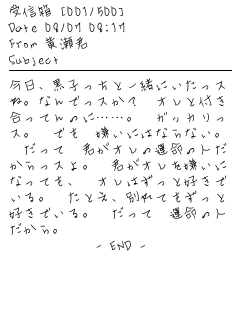 受信箱 [001/500]
Date 08/07 08:17
From 黄瀬君
Subject
今日、黒子っちと一緒にいたっス
ね。なんでっスか? オレと付き
合ってんのに……。 ガッカリっ
ス。 でも 嫌いにはならない。
だって 君がオレの運命の人だ
からっスよ。 君がオレを嫌いに
なっても、 オレはずっと好きで
いる。 たとえ、別れてもずっと
好きでいる。 だって 運命の人
だから。
- END -